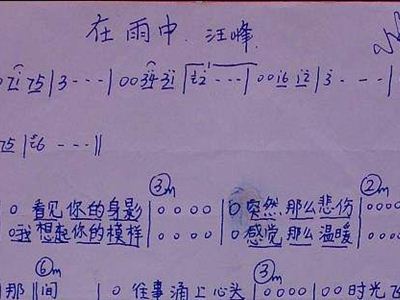 在雨中 汪峰
0 7 1 7 5 | 3 - - - | 0 0 3 4 3 1 | 2 - - - | 0 0 1 6 1 2 | 3 - - - | 0
7 5 | 6 - - - ||
③m ②m
| 0 看见你的身影 | 0 0 0 0 | 0 突然那么悲伤 | 0 0 0 0
| 0 我想起你的模样 | 0 0 0 0 | 0 感觉那么温暖 | 0 0 0 0
⑥m ③m
那 | 间 0 往事涌上心头 | 0 0 0 0 | 0 0 时光